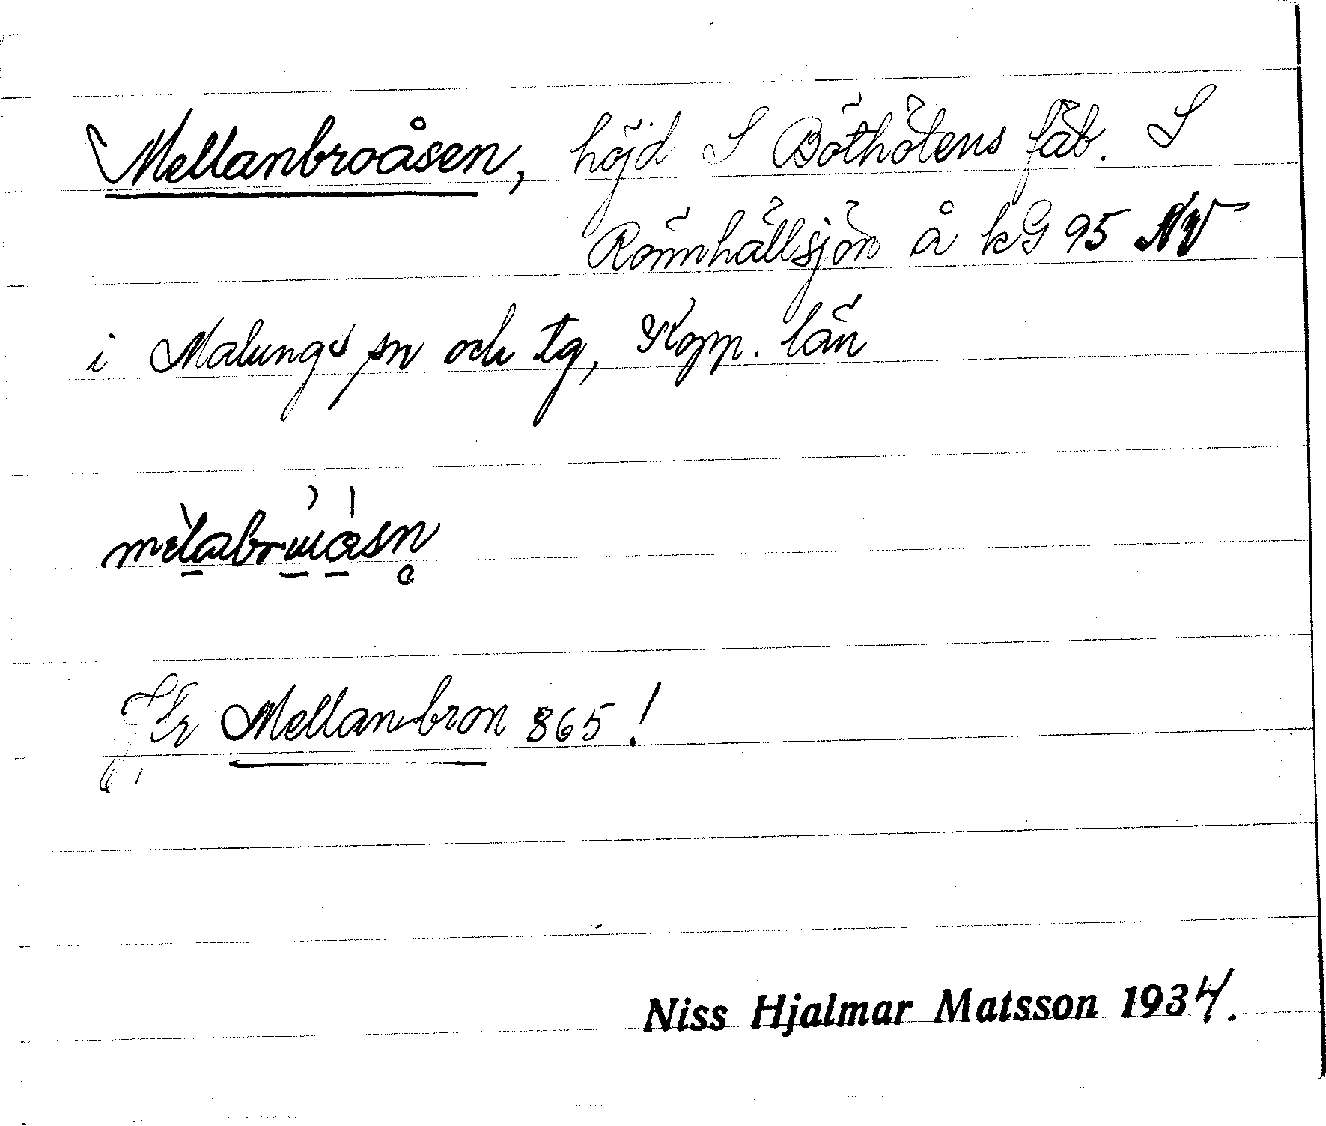 Mellanbroåsen, höjd S Böthölens fäb. S
Rönnhällsjön å kG 95 NV
i Malungs sn och tg, Kopp. län
Jfr Mellanbron 865!
Niss Hjalmar Matsson 1934.